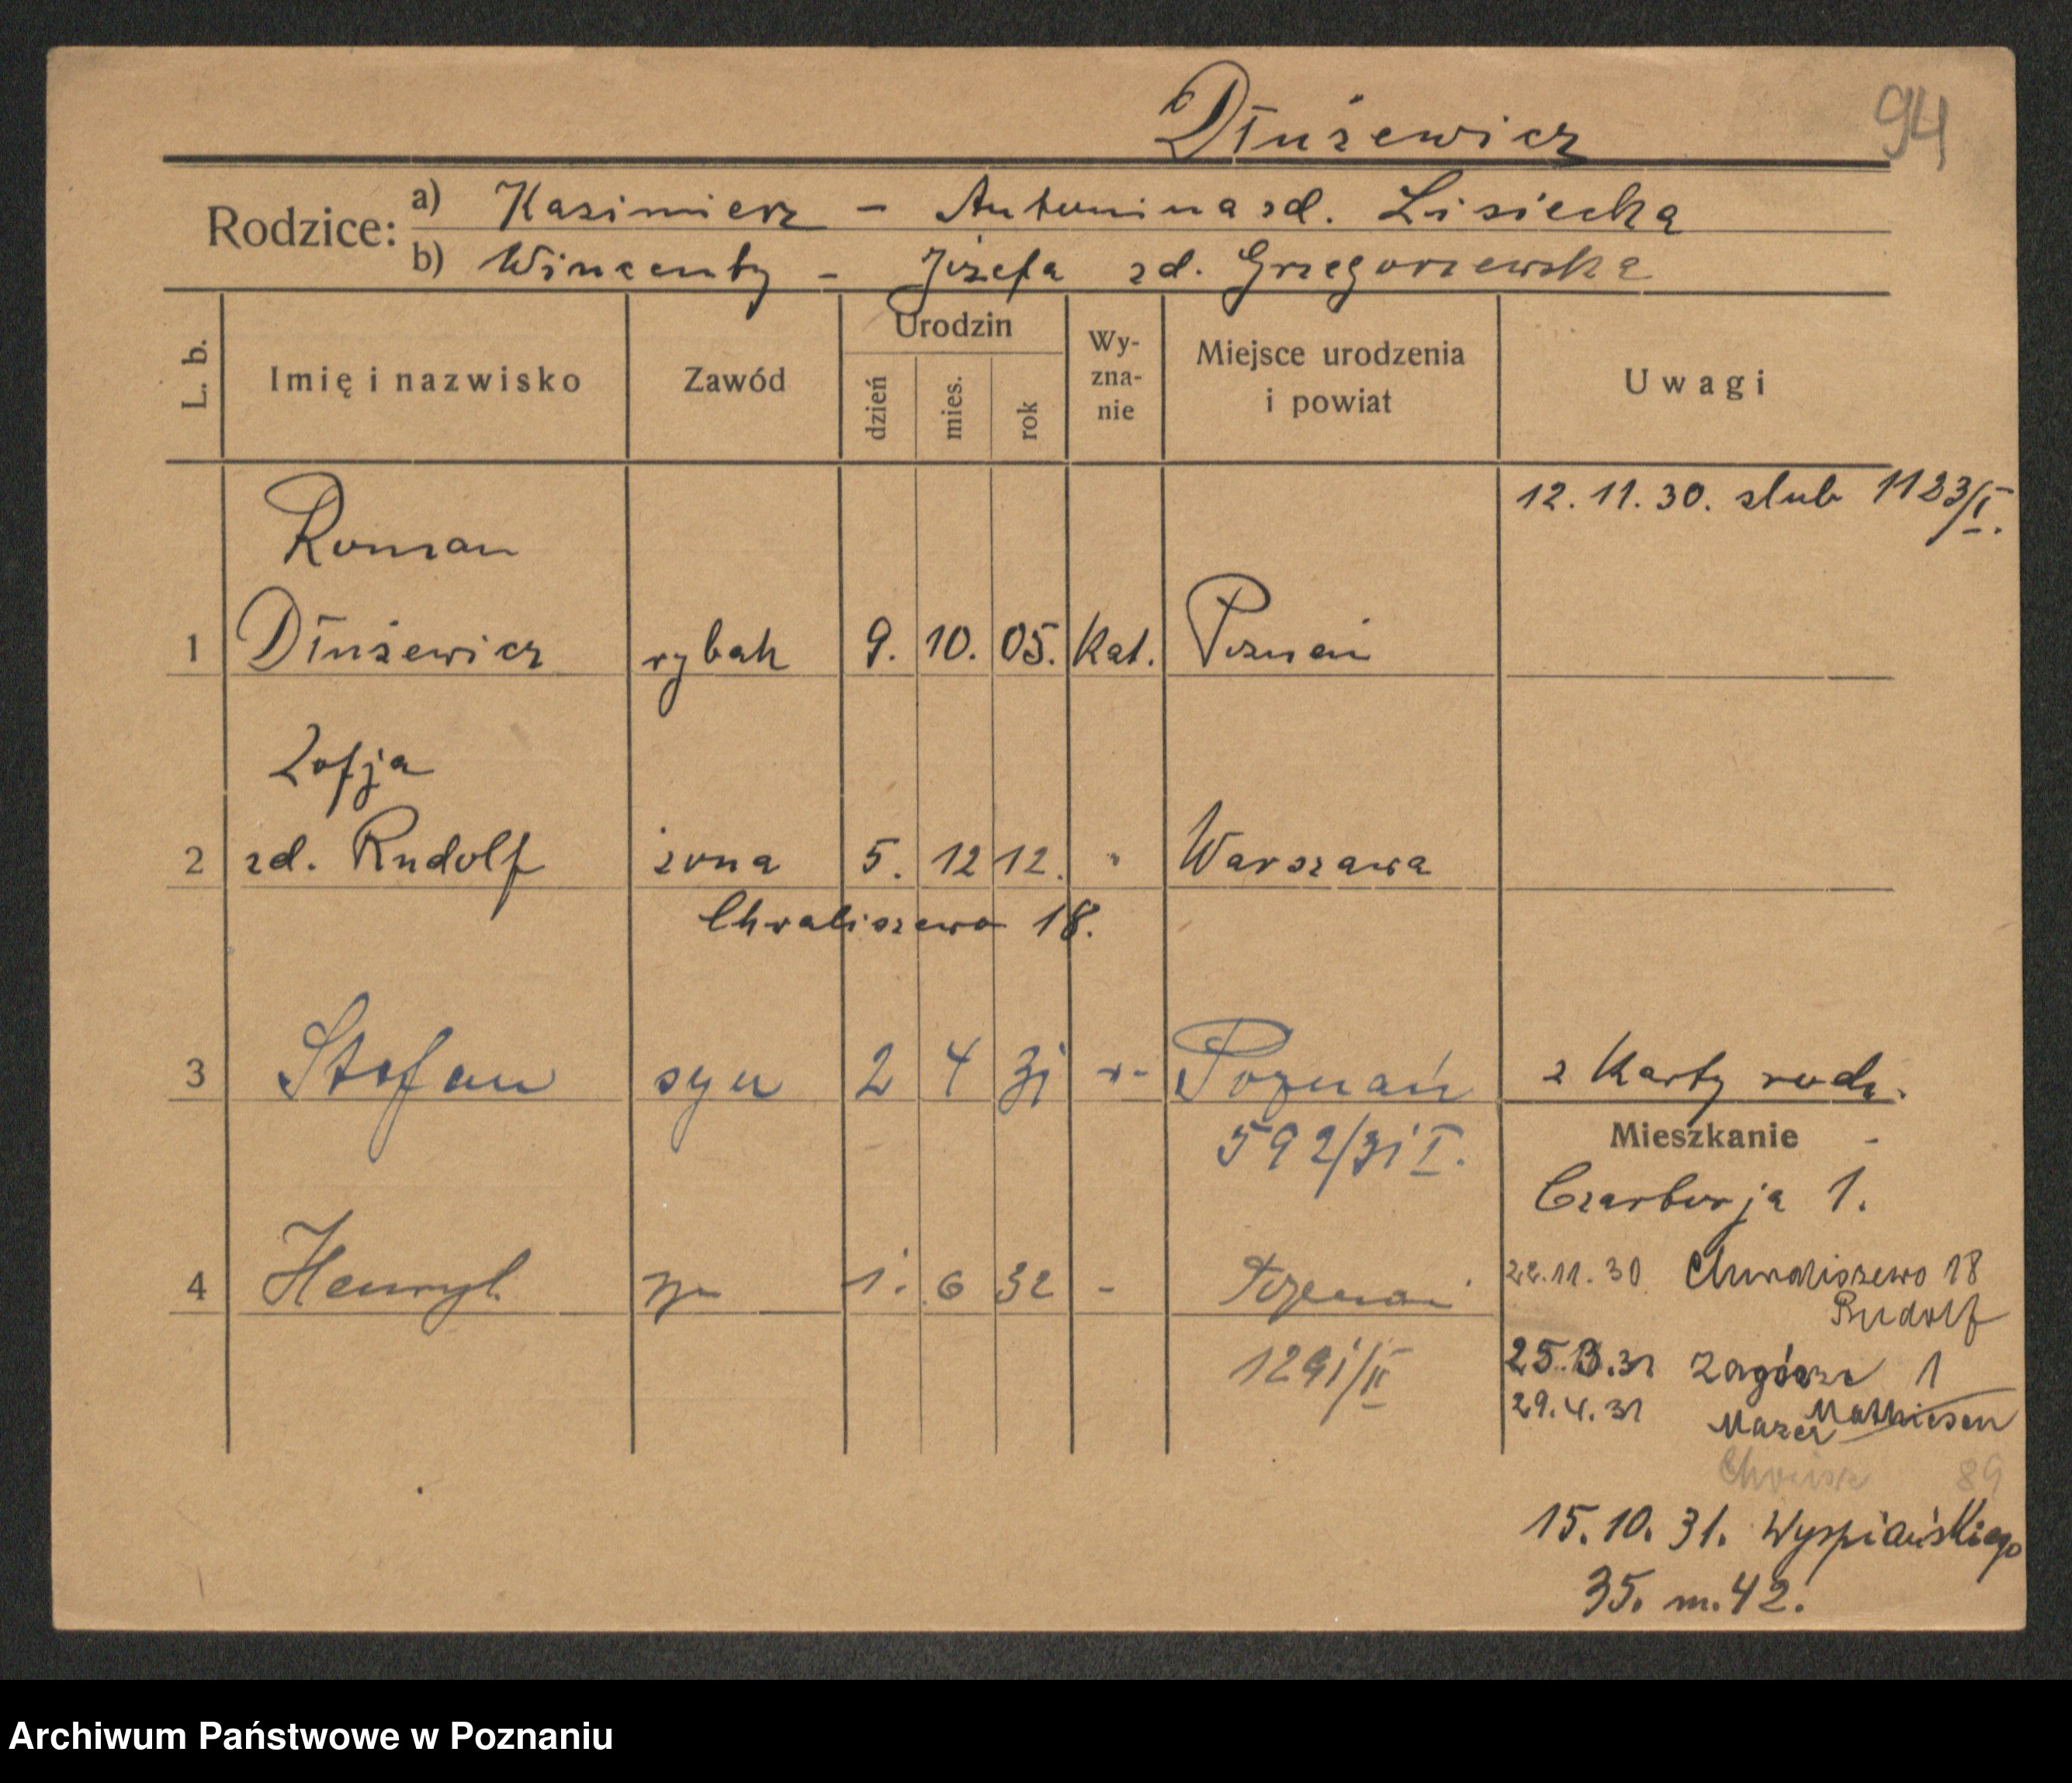 Dłużewicz
94
Rodzice:
a) Kazimierz - Antonina zd. Lisiecka
b) Wincenty - Józefa zd. Grzegorzewska
L. b.
Imię i nazwisko
Zawód
Urodzin
dzień
mies.
rok
Wy-
zna-
nie
Miejsce urodzenia
i powiat
Uwagi
12. 11. 30. slub 1123/I.
Roman
1 Dłużewicz rybak 9. 10. 05. Kat. Poznań
Zofja
2 zd. Rudolf żona 5. 12 12. " Warszawa
Chwaliszewo 18.
3 Stefan syn 2 4 31 -"- Poznań z Karty rodz.
592/31 I.
Mieszkanie -
Czartorja 1.
4 Henryk syn 1. 6 32 - Poznań
1291/II
22.11.30 Chwaliszewo 18
Rudolf
25.3.31 Zagórze 1
Mathiesen
29.4.31 Mazer
89
15. 10. 31. Wyspiańskiego
35. m. 42.
Archiwum Państwowe w Poznaniu